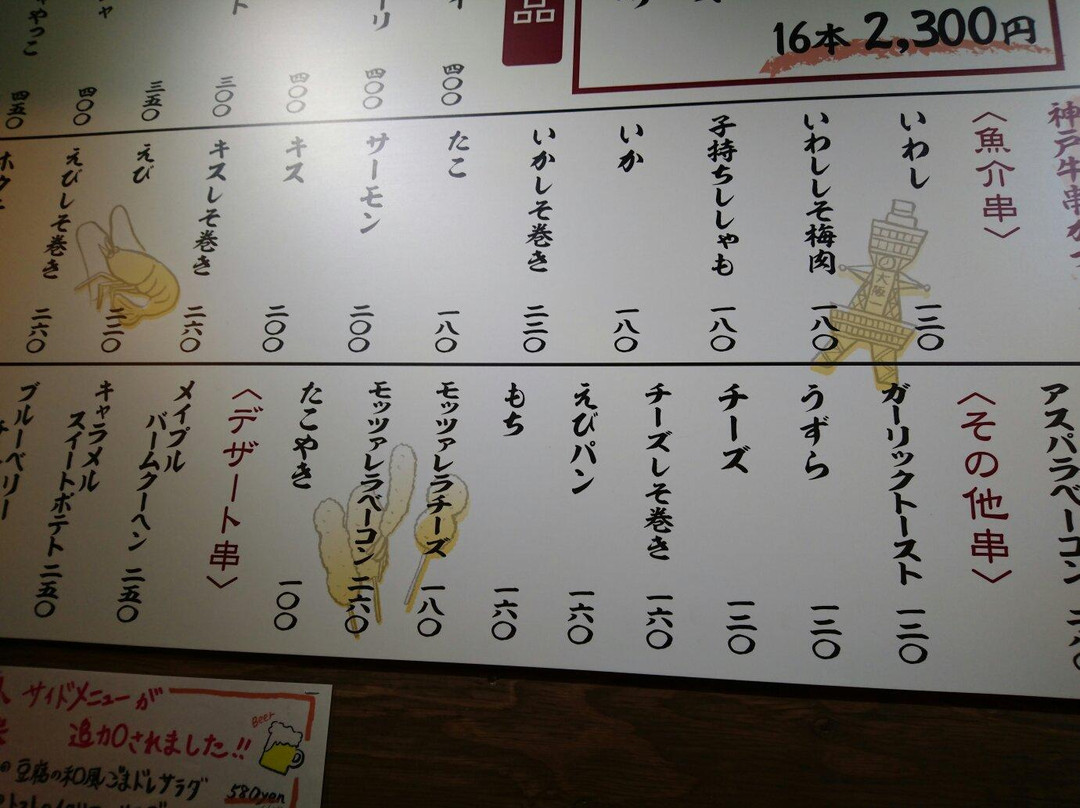 品
16本 2,300円
四〇〇
四〇〇
四〇〇
三〇〇
三五〇
四〇〇
四五〇
神戸牛串かつ
〈魚介串〉
いわし 一二〇
いわししそ梅肉 一八〇
子持ちししゃも 一八〇
いか 一八〇
いかしそ巻き 二二〇
たこ 一八〇
サーモン 二〇〇
キス 二〇〇
キスしそ巻き 二六〇
えび 二二〇
えびしそ巻き 二六〇
大阪一
アスパラベーコン
〈その他串〉
ガーリックトースト 一二〇
うずら 一二〇
チーズ 一二〇
チーズしそ巻き 一六〇
えびパン 一六〇
もち 一六〇
モッツァレラチーズ 一八〇
モッツァレラベーコン 二六〇
たこやき 一〇〇
〈デザート串〉
メイプル
バームクーヘン 二五〇
キャラメル
スイートポテト 二五〇
ブルーベリー
サイドメニューが
追加されました!!
Beer
豆腐の和風ごまドレサラダ
580yen